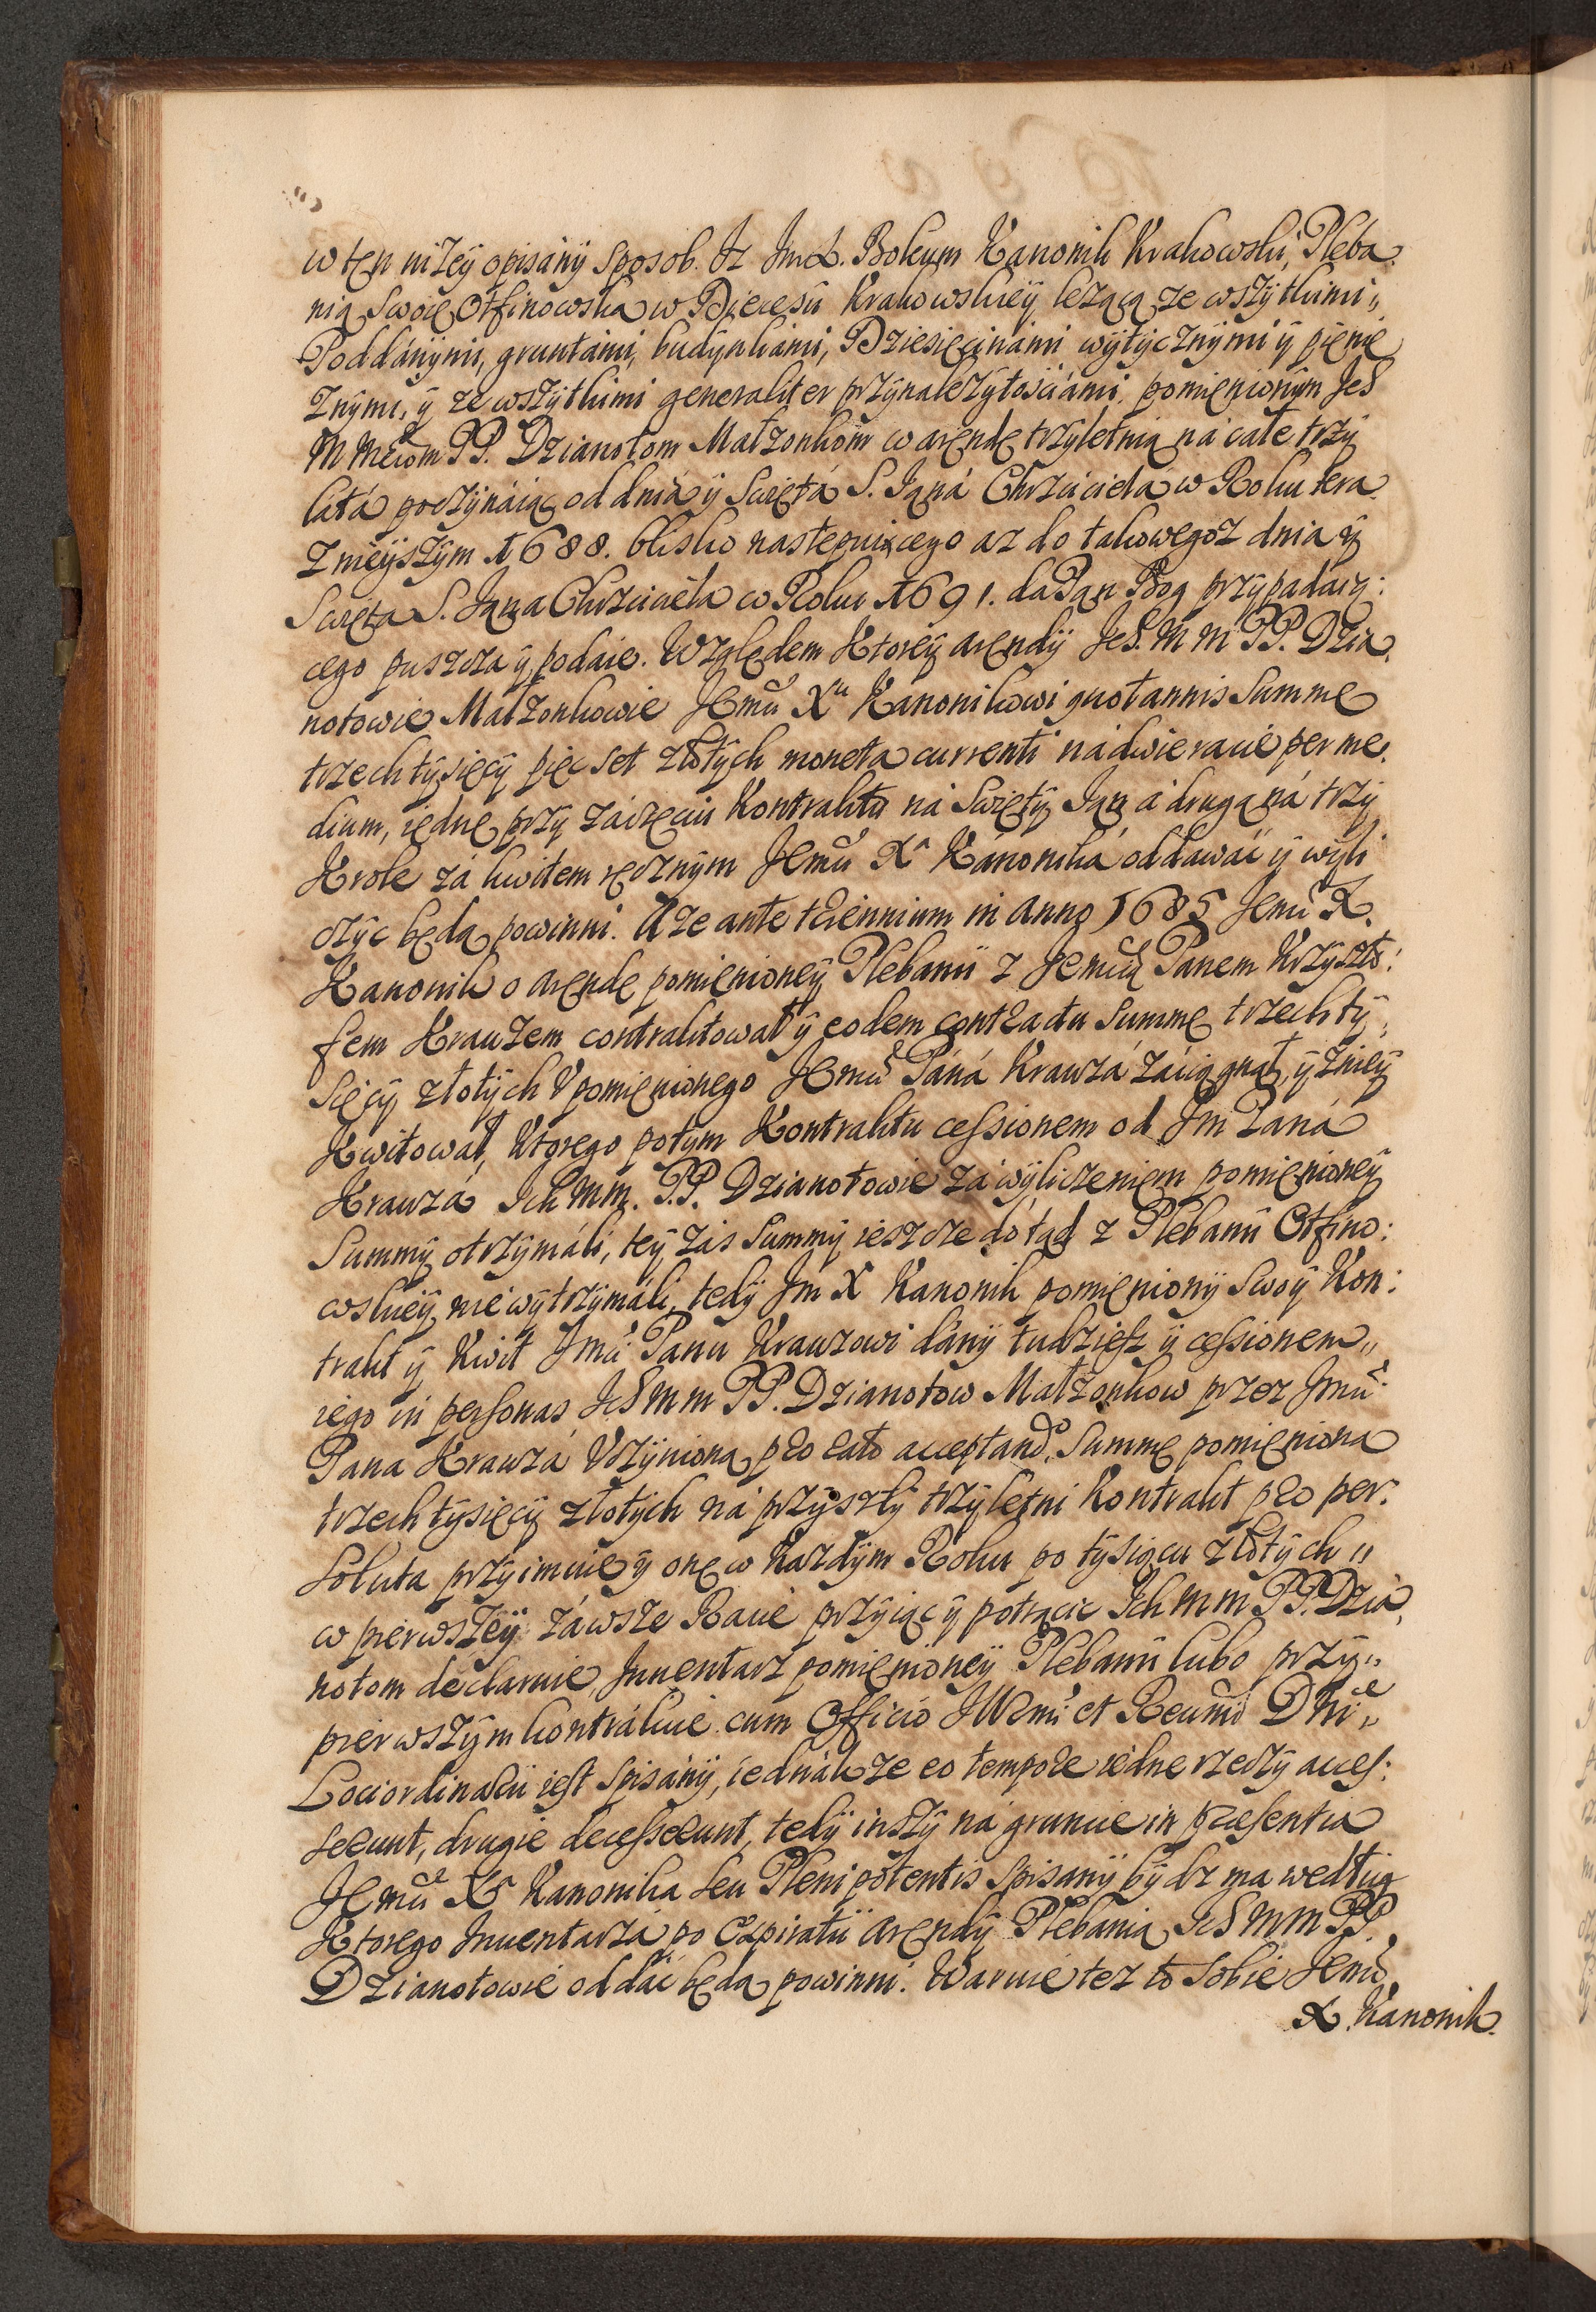 w tęn niżeÿ opisánÿ sposob. Iz Jmć X. Bokum Kanonik Krakowski, Pleba:
nią Swoię Otfinowską w Diecesii Krakowskieÿ leząca ze wszÿtkimi„
Poddánÿmi, gruntámi, budÿnkámi, Dziesięcinámi wÿtÿcznÿmi ÿ pięnię
znÿmi, ÿ ze wszÿtkimi generaliter przÿnależÿtościámi, pomięnionÿm Ich
M Mciom PP. Dzianotom Małzonkom w aręndę trzÿletnią ná całe trzÿ
látá poczÿnáiąc od dniá ÿ Swiętá S. Iąná Chrzcicielá w Roku tera:
znieÿszÿm 1688. blisko nastepuiącego az do takowegoz dnia ÿ
Swięta S. Jana Chrzciciela w Roku 1691. da Pan Bog przÿpadáią:
cego puszcza ÿ podaie. Względem Ktoreÿ aręndÿ Ich. M M PP. Dzia:
notowie Małzonkowie Jemći Xu Kánonikowi quotannis Summę
trzech tÿsięcÿ pięc set złotÿch moneta currenti ná dwie racie per me:
dium, iednę przÿ záczęciu Kontraktu ná Swiętÿ Ián á drugą ná trzÿ
Krole zá kwitem ręcznÿm Jemći Xa Kánoniká oddawáć ÿ wÿli
czÿc będą powinni. A ze ante triennium in Anno 1685 Jemć X.
Kanonik o aręndę pomięnioneÿ Plebanii z Jemścią Panem Krzÿszto:
fem Krauzem contraktował ÿ eodem contractu Summę trzech tÿ:
sięcÿ złotÿch V pomięnionego Jemći Páná Krauzá záciągnął, ÿ znieÿ
Kwitował, Ktorego potÿm Kontraktu cessionem od Jm Páná
Krauzá Ich MM. PP. Dzianotowie zá wÿliczeniem pomięnioneÿ
Summÿ otrzÿmáli, teÿ zás Summÿ ieszcze dotąd z Plebanii Otfino:
wskieÿ nie wÿtrzÿmáli, tedÿ Jm X Kanonik pomięnionÿ Swoÿ Kon:
trakt ÿ Kwit Jmći Panu Krauzowi dánÿ tudziesz ÿ cessionem„
iego in personas Ich M M PP. Dzianotow Małzonkow przez Jmći
Pana Krauzá Vczÿnioną pro rato acceptando, Summę pomięnioną
trzech tÿsięcÿ złotÿch ná przÿszłÿ trzÿletni Kontrakt pro per:
soluta przÿimuie ÿ onę w Kazdÿm Roku po tÿsiącu złotÿch„
w pierwszeÿ záwsze Racie przÿiąc ÿ potrącic Ich M M PP. Dzia:
notom declaruie, Inuentarz pomięnioneÿ Plebanii lubo przÿ„
pierwszÿm kontrakcie cum Officio Illmi et Reumi Dni„
Lociordinarii iest spisánÿ, iednák ze eo tempore iedne rzeczÿ acces:
serunt, drugie decesserunt, tedÿ inszÿ ná gruncie in præsentia
Jemći Xa Kanonika seu Plenipotentis Spisanÿ bÿdz ma według
Ktorego Inuentarzá po Expiratii Aręndÿ Plebanią Ich M M PP.
Dzianotowie oddác będą powinni. Waruie tez to Sobie Jemć
X. Kanonik.